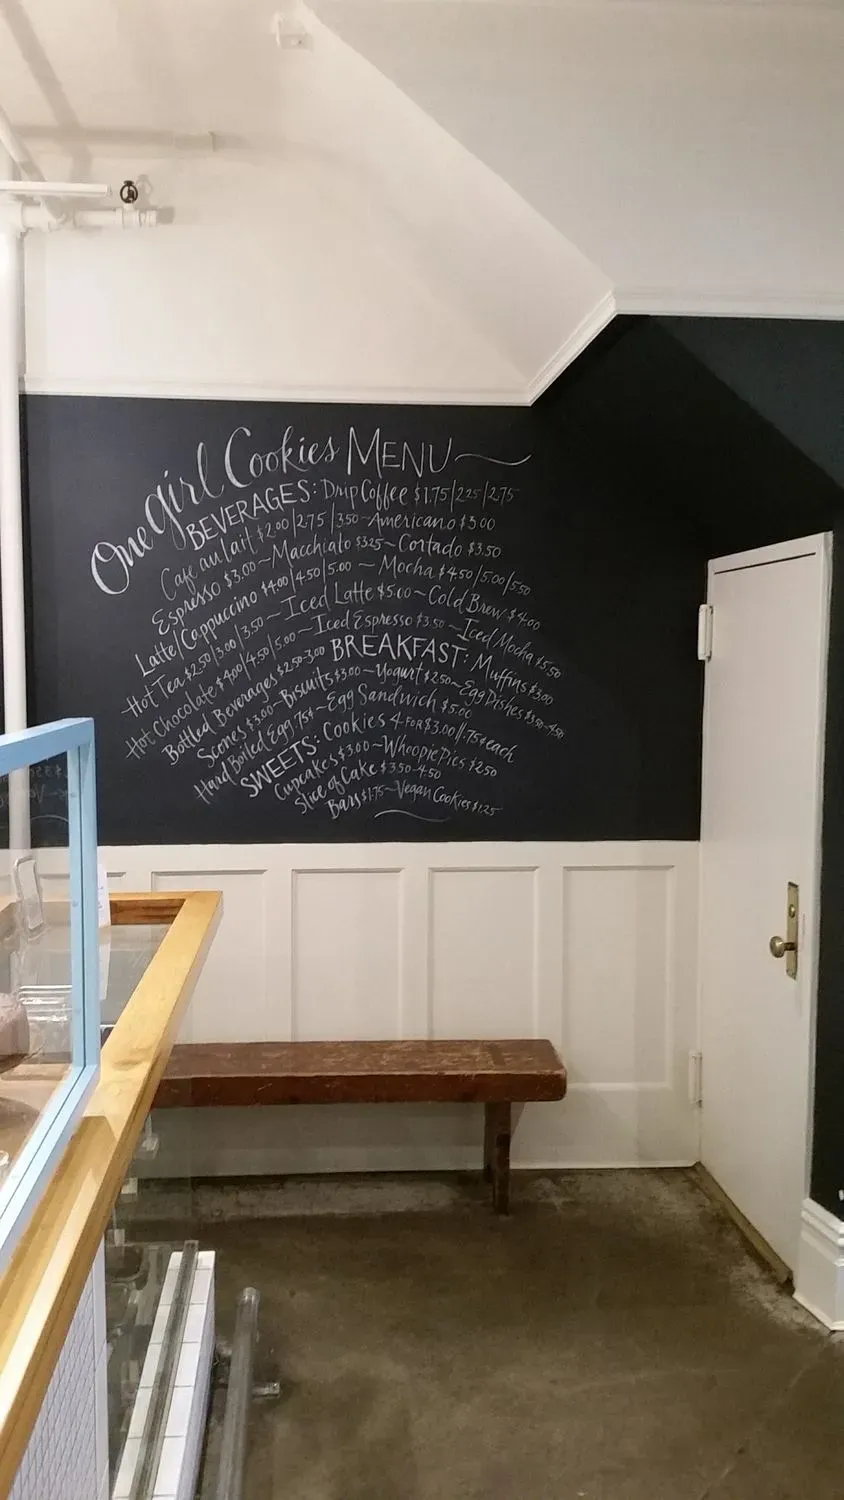 One Girl Cookies MENU
BEVERAGES: Drip Coffee $1.75/2.25/2.75
Cafe au lait $2.00/2.75/3.50~Americano $3.00
Espresso $3.00~Macchiato $3.25~Cortado $3.50
Latte/Cappuccino $4.00/4.50/5.00 ~ Mocha $4.50/5.00/5.50
Hot Tea $2.50/3.00/3.50~Iced Latte $5.00~Cold Brew $4.00
Hot Chocolate $4.00/4.50/5.00~Iced Espresso $3.50~Iced Mocha $5.50
Bottled Beverages $2.50-3.00 BREAKFAST: Muffins $3.00
Scones $3.00~Biscuits $3.00~Yogurt $2.50~Egg Dishes $3.50-4.50
Hard Boiled Egg 75¢~Egg Sandwich $5.00
SWEETS: Cookies 4 FOR $3.00//.75¢each
Cupcakes $3.00~Whoopie Pies $2.50
Slice of Cake $3.50-4.50
Bars $1.75~Vegan Cookies $1.25